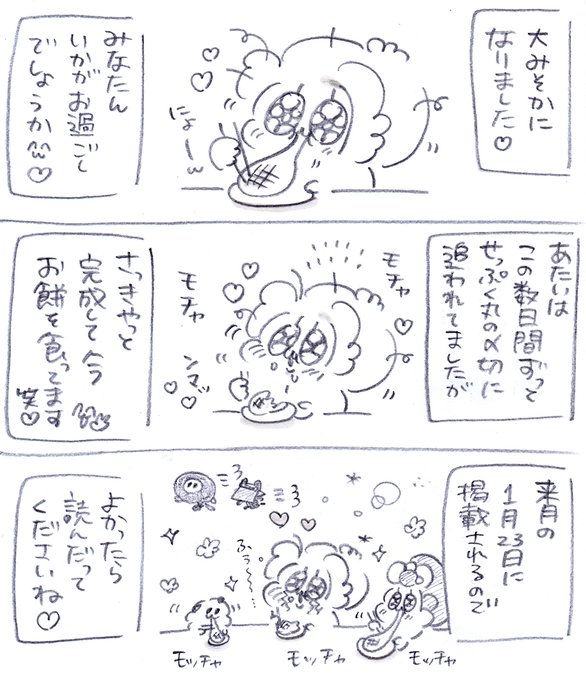 大みそかに
なりました♡
みなたん
いかがお過ごし
でしょうか♡
にょーw
あたいは
この数日間ずっと
せっぷく丸の〆切に
追われてましたが
モチャ
モチャ
ンマッ
さっきやっと
完成して今
お餅を食ってます
笑♡
来月の
1月23日に
掲載されるので
ふぅ〜〜…
モッチャ
モッチャ
モッチャ
よかったら
読んだって
くださいね♡